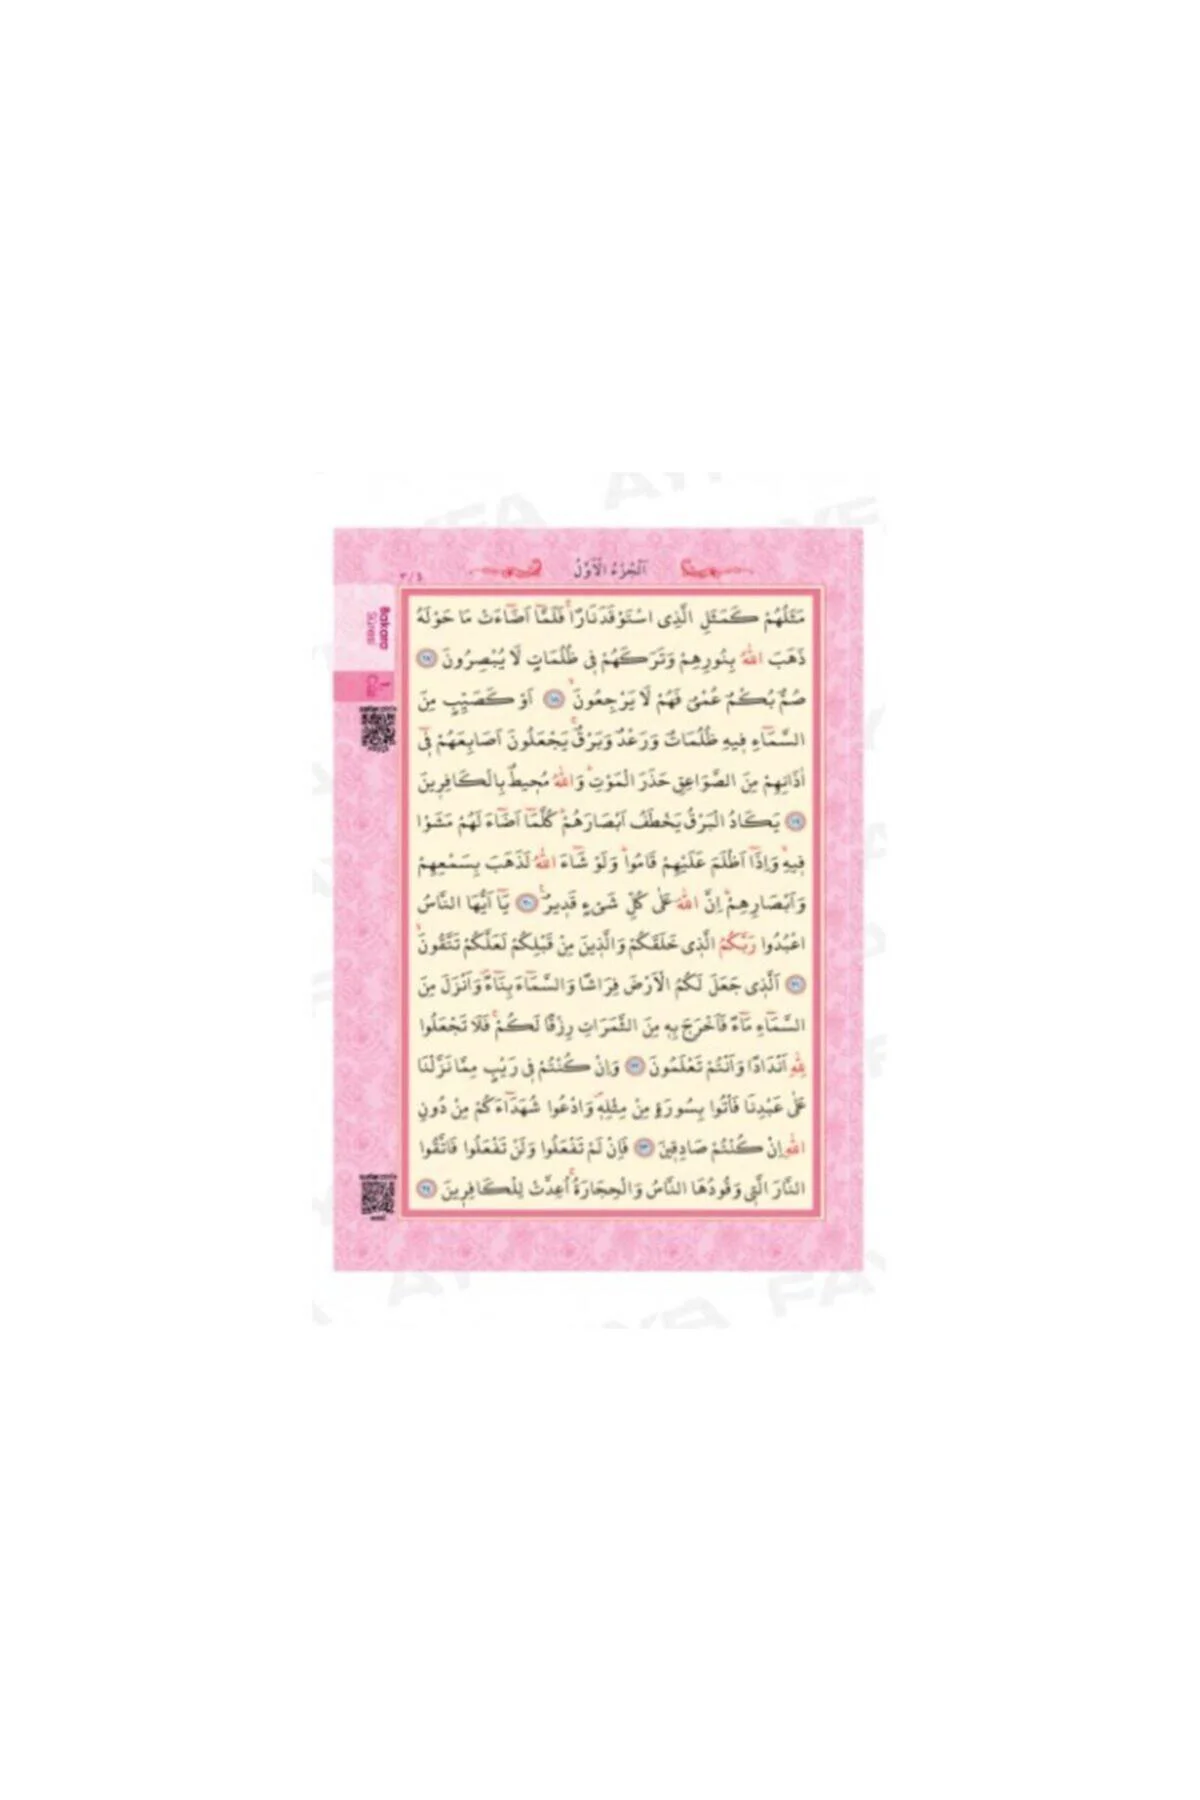 اَلْجُزْءُ الْاَوَّلُ
٣/٤
Bakara
Sûresi
١
Cüz
مَثَلُهُمْ كَمَثَلِ الَّذِى اسْتَوْقَدَ نَارًاۚ فَلَمَّٓا اَضَٓاءَتْ مَا حَوْلَهُ
ذَهَبَ اللّٰهُ بِنُورِهِمْ وَتَرَكَهُمْ فِى ظُلُمَاتٍ لَا يُبْصِرُونَ ﴿١٧﴾
صُمٌّ بُكْمٌ عُمْىٌ فَهُمْ لَا يَرْجِعُونَۙ ﴿١٨﴾ اَوْ كَصَيِّبٍ مِنَ
السَّمَٓاءِ فِيهِ ظُلُمَاتٌ وَرَعْدٌ وَبَرْقٌۚ يَجْعَلُونَ اَصَابِعَهُمْ فِٓى
اٰذَانِهِمْ مِنَ الصَّوَاعِقِ حَذَرَ الْمَوْتِۜ وَاللّٰهُ مُحِيطٌ بِالْكَافِرِينَ
﴿١٩﴾ يَكَادُ الْبَرْقُ يَخْطَفُ اَبْصَارَهُمْۜ كُلَّمَٓا اَضَٓاءَ لَهُمْ مَشَوْا
فِيهِۙ وَاِذَٓا اَظْلَمَ عَلَيْهِمْ قَامُواۜ وَلَوْ شَٓاءَ اللّٰهُ لَذَهَبَ بِسَمْعِهِمْ
وَاَبْصَارِهِمْۜ اِنَّ اللّٰهَ عَلٰى كُلِّ شَىْءٍ قَدِيرٌ۟ ﴿٢٠﴾ يَٓا اَيُّهَا النَّاسُ
اعْبُدُوا رَبَّكُمُ الَّذِى خَلَقَكُمْ وَالَّذِينَ مِنْ قَبْلِكُمْ لَعَلَّكُمْ تَتَّقُونَۙ
﴿٢١﴾ اَلَّذِى جَعَلَ لَكُمُ الْاَرْضَ فِرَاشًا وَالسَّمَٓاءَ بِنَٓاءً وَاَنْزَلَ مِنَ
السَّمَٓاءِ مَٓاءً فَاَخْرَجَ بِهِ مِنَ الثَّمَرَاتِ رِزْقًا لَكُمْۚ فَلَا تَجْعَلُوا
لِلّٰهِ اَنْدَادًا وَاَنْتُمْ تَعْلَمُونَ ﴿٢٢﴾ وَاِنْ كُنْتُمْ فِى رَيْبٍ مِمَّا نَزَّلْنَا
عَلٰى عَبْدِنَا فَأْتُوا بِسُورَةٍ مِنْ مِثْلِهِۖ وَادْعُوا شُهَدَٓاءَكُمْ مِنْ دُونِ
اللّٰهِ اِنْ كُنْتُمْ صَادِقِينَ ﴿٢٣﴾ فَاِنْ لَمْ تَفْعَلُوا وَلَنْ تَفْعَلُوا فَاتَّقُوا
النَّارَ الَّتِى وَقُودُهَا النَّاسُ وَالْحِجَارَةُۚ اُعِدَّتْ لِلْكَافِرِينَ ﴿٢٤﴾